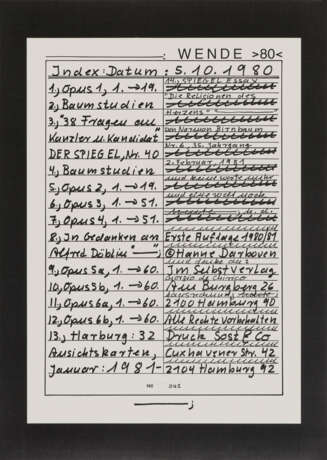 : WENDE >80<
Index: Datum : 5. 10. 1980
1, Opus 1, 1. → 19.
14, SPIEGEL Essay
"Die Religionen des
2, Baumstudien
Herzens"
3, "38 Fragen an
Kanzler u. Kandidat"
von Norman Birnbaum
DER SPIEGEL, Nr. 40
Nr. 6, 35. Jahrgang
2. Februar 1981
4, Baumstudien
5, Opus 2, 1. → 19.
6, Opus 3, 1. → 51.
7, Opus 4, 1. → 51.
8, In Gedanken an
Erste Auflage 1980/81
Alfred Döblin
© Hanne Darboven
9, Opus 5a, 1. → 60.
Im Selbstverlag
Giorgio de Chirico
10, Opus 5b, 1. → 60.
Am Burgberg 26
11, Opus 6a, 1. → 60.
2100 Hamburg 90
12, Opus 6b, 1. → 60.
Alle Rechte vorbehalten
13, Harburg: 32
Druck: Sost & Co
Ansichtskarten,
Cuxhavener Str. 42
Januar: 1981-
2104 Hamburg 92